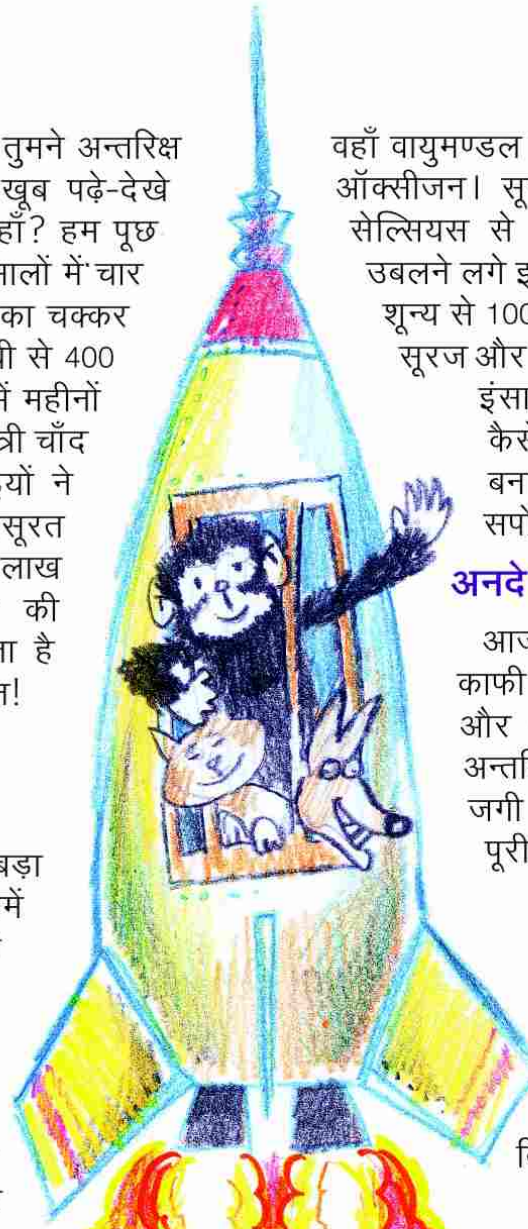 तुमने अन्तरिक्ष
खूब पढ़े-देखे
हाँ? हम पूछ
सालों में चार
का चक्कर
वी से 400
में महीनों
त्री चाँद
यों ने
सूरत
लाख
की
ना है
न!
बड़ा
में
वहाँ वायुमण्डल
ऑक्सीजन। सू
सेल्सियस से
उबलने लगे इ
शून्य से 100
सूरज और
इंसा
कैसे
बन
सपे
अनदे
आज
काफी
और
अन्तरि
जगी
पूरी